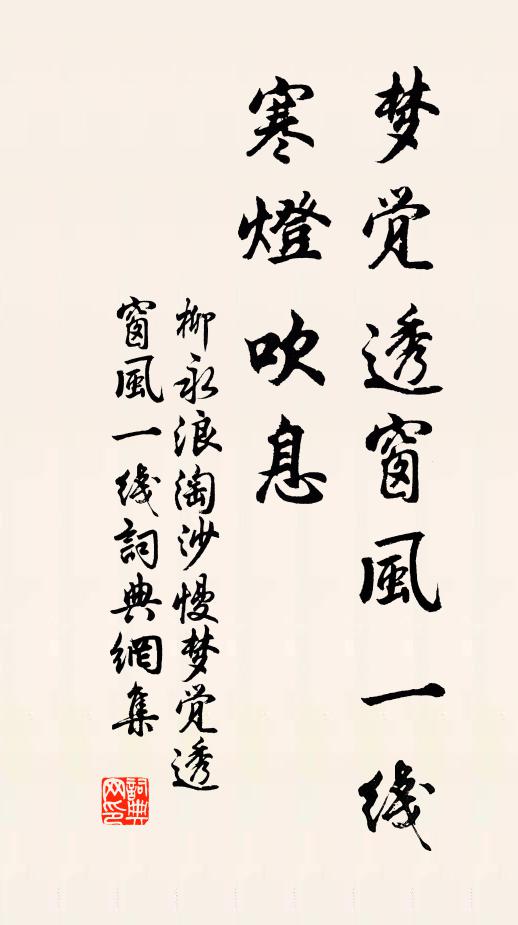 梦觉透窗風一线
寒燈吹息
柳永浪淘沙慢梦觉透
窗風一线詞典網集
詞典网印